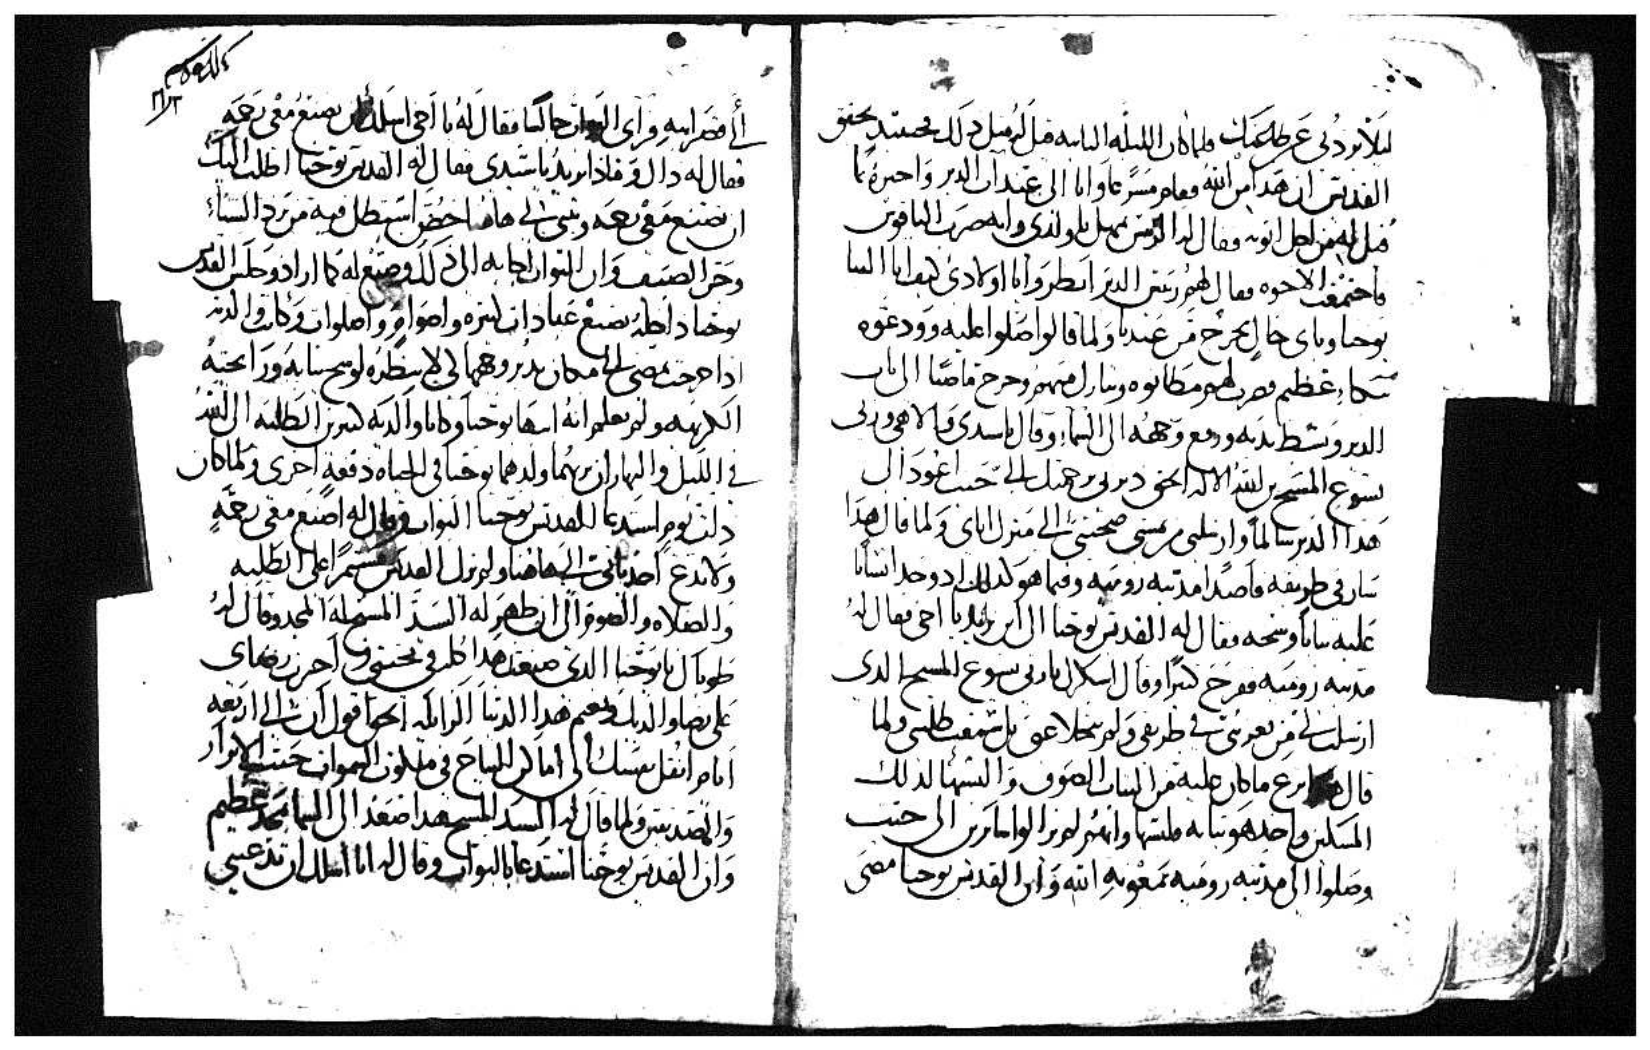 ليلا تردني عن طلبتك فلما كان الليله التانيه قيل له مثل ذلك فحينئد تحقق
القديس ان هدا من الله فقام مسرعا واتا الى عند اب الدير واخبره بما
قيل له من اجل ابويه فقال له الريس تمهل يا ولدي وانه ضرب الناقوس
فاجتمعت الاخوه فقال لهم ريس الدير انظروا يا اولادي كيف اتا الينا
يوحنا وباي حال يخرج من عندنا ولما قالوا صلوا عليه وودعوه
ببكاء عظيم فضرب لهم مطانوه وتبارك منهم وخرج ماضيا الى باب
الدير وبسط يديه ورفع وجهه الى السماء وقال يا سيدي والاهي وربي
يسوع المسيح بن الله الاله الحي دبرني برحمتك الى حيت اعود الى
هدا الدير سالما وارسل من يمشي صحبتي الى منزل اباي ولما قال هدا
سار في طريقه قاصدا مدينه روميه وفيما هو كدلك اد وجد انسانا
عليه تيابا وسخه فقال له القديس يوحنا الى اين تريد يا اخي فقال له
مدينه روميه ففرح كتيرا وقال اشكرك يا ربي يسوع المسيح الدي
ارسلت لي من يعزيني في طريقي ولم تتخلا عني بل سمعت طلبتي ولما
قال هدا نزع ما كان عليه من التياب الصوف والبسها لدلك
المسكين واخد هو تيابه فلبسها وانهم لم يزالوا سايرين الى حيت
وصلوا الى مدينه روميه بمعونه الله وان القديس يوحنا مضى
الى قصر ابيه وراى البواب جالسا فقال له يا اخي اسلك ان تصنع معي رحمه
فقال له دالك وماذا تريد يا سيدي فقال له القديس يوحنا اطلب اليك
ان تصنع معي رحمه وتبني لي هاهنا خص استظل فيه من برد الشتاء
وحر الصيف وان البواب اجابه الى دلك وصنع له كما اراد وجلس القديس
يوحنا داخله يصنع عبادات كتيره واصوام وصلوات وكانت والدته
ادا خرجت تمضي الى مكان تدير وجهها لكي لا تنظره لوسخ تيابه ورايحته
الكريهه ولم تعلم انه ابنها يوحنا وكانا والديه كتيرين الطلبه الى الله
في الليل والنهار ان يريهما ولدهما يوحنا في الحياه دفعة اخرى ولما كان
دات يوم استدعا القديس يوحنا البواب وقال له اصنع معي رحمه
ولا تدع احد ياتي الى هاهنا ولم يزل القديس مستمرا على الطلبه
والصلاه والصوم الى ان ظهر له السيد المسيح له المجد وقال له
طوباك يا يوحنا الدي صنعت هدا كله في محبتي
على رضا والديك ونعيم هدا الدنيا الزايله الحق اقول لك ان الى اربعه
ايام انقل نفسك الى اماكن النياح في ملكوت السموات حيت الابرار
والصديقين ولما قال له السيد المسيح هدا صعد الى السما بمجد عظيم
وان القديس يوحنا استدعا بالبواب وقال له انا اسلك ان تدعي لي